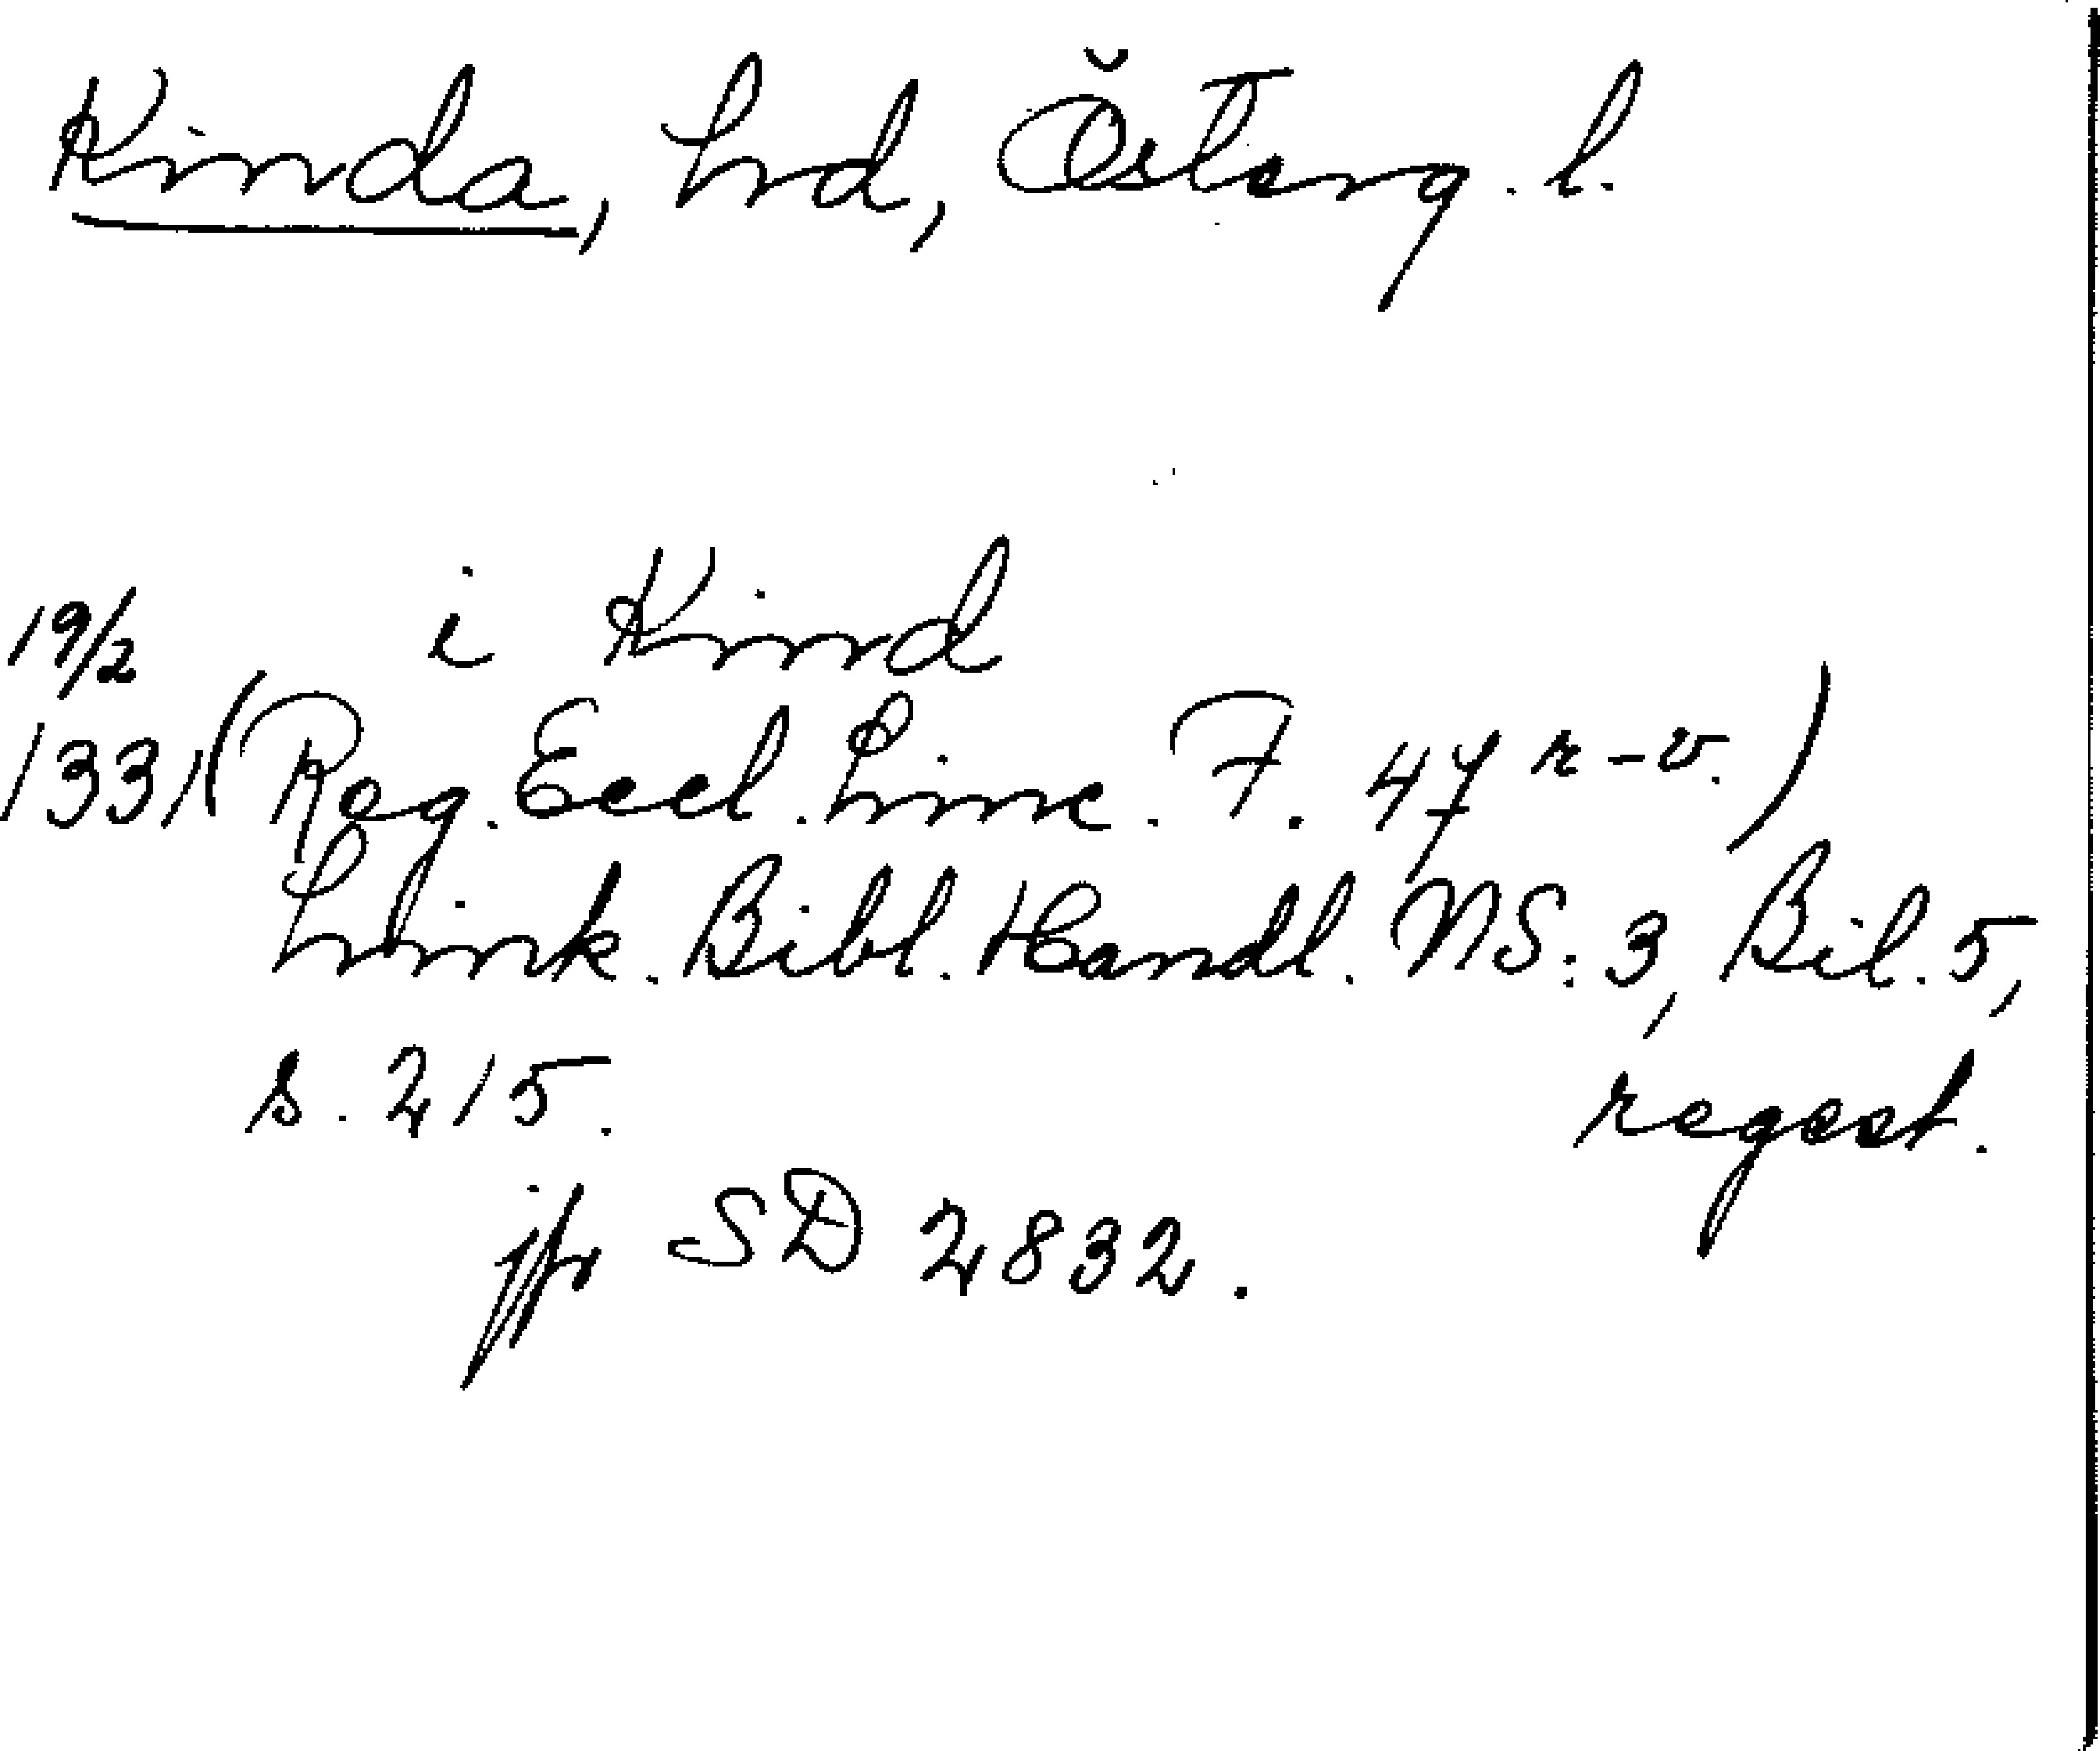 Kinda, hrd, Österg. l.
19/2 i Kind
1331 (Reg. Eccl. Linc. F. 47 r-v.)
Link. Bibl. Handl. NS: 3, Bil. 5,
s. 215. regest.
jfr SD 2832.